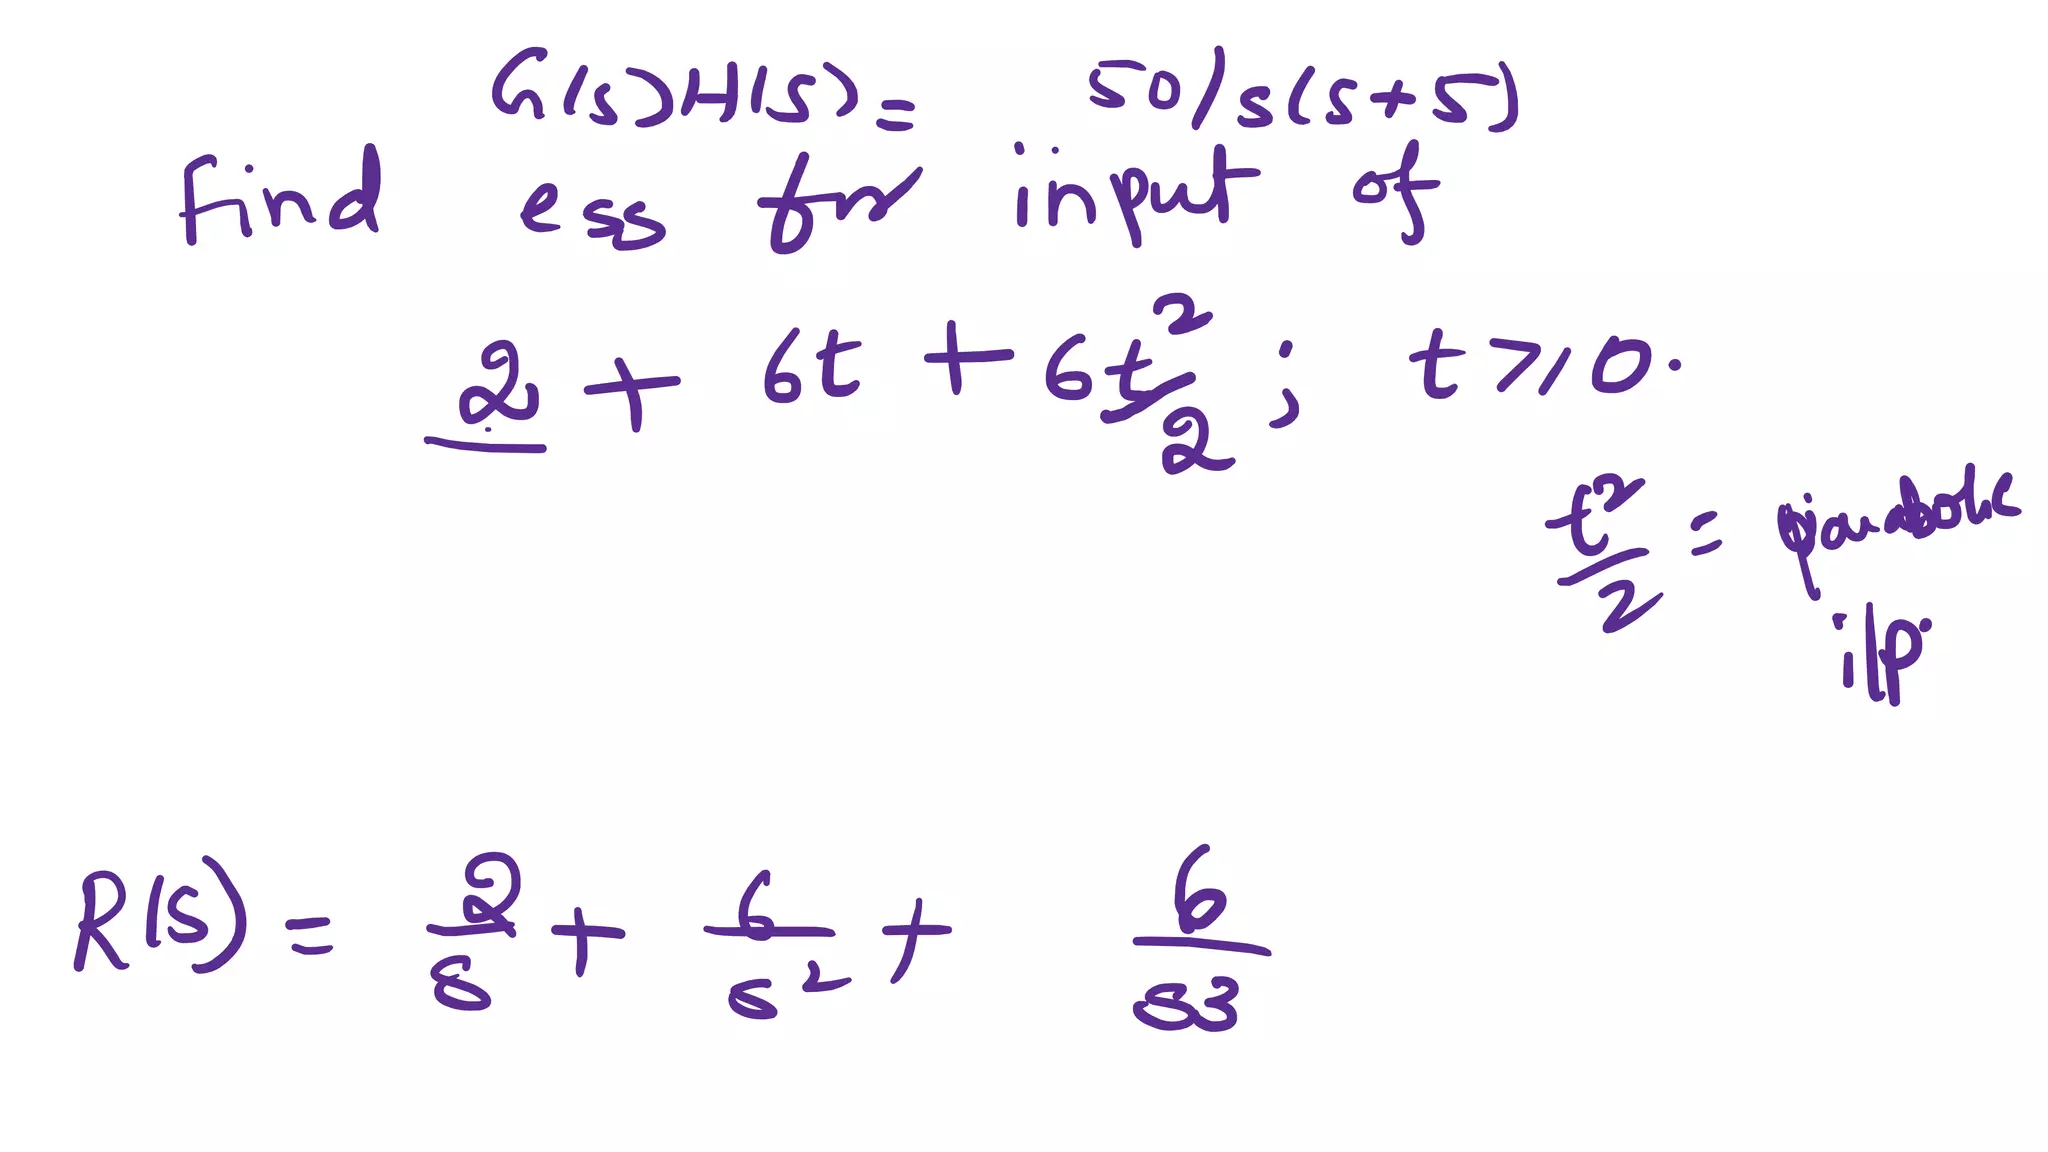 G(s)H(s) = 50/s(s+5)
Find ess for input of
2 + 6t + 6t²/2 ; t ≥ 0.
t²/2 = parabolic
i/p.
R(s) = 2/s + 6/s² + 6/s3